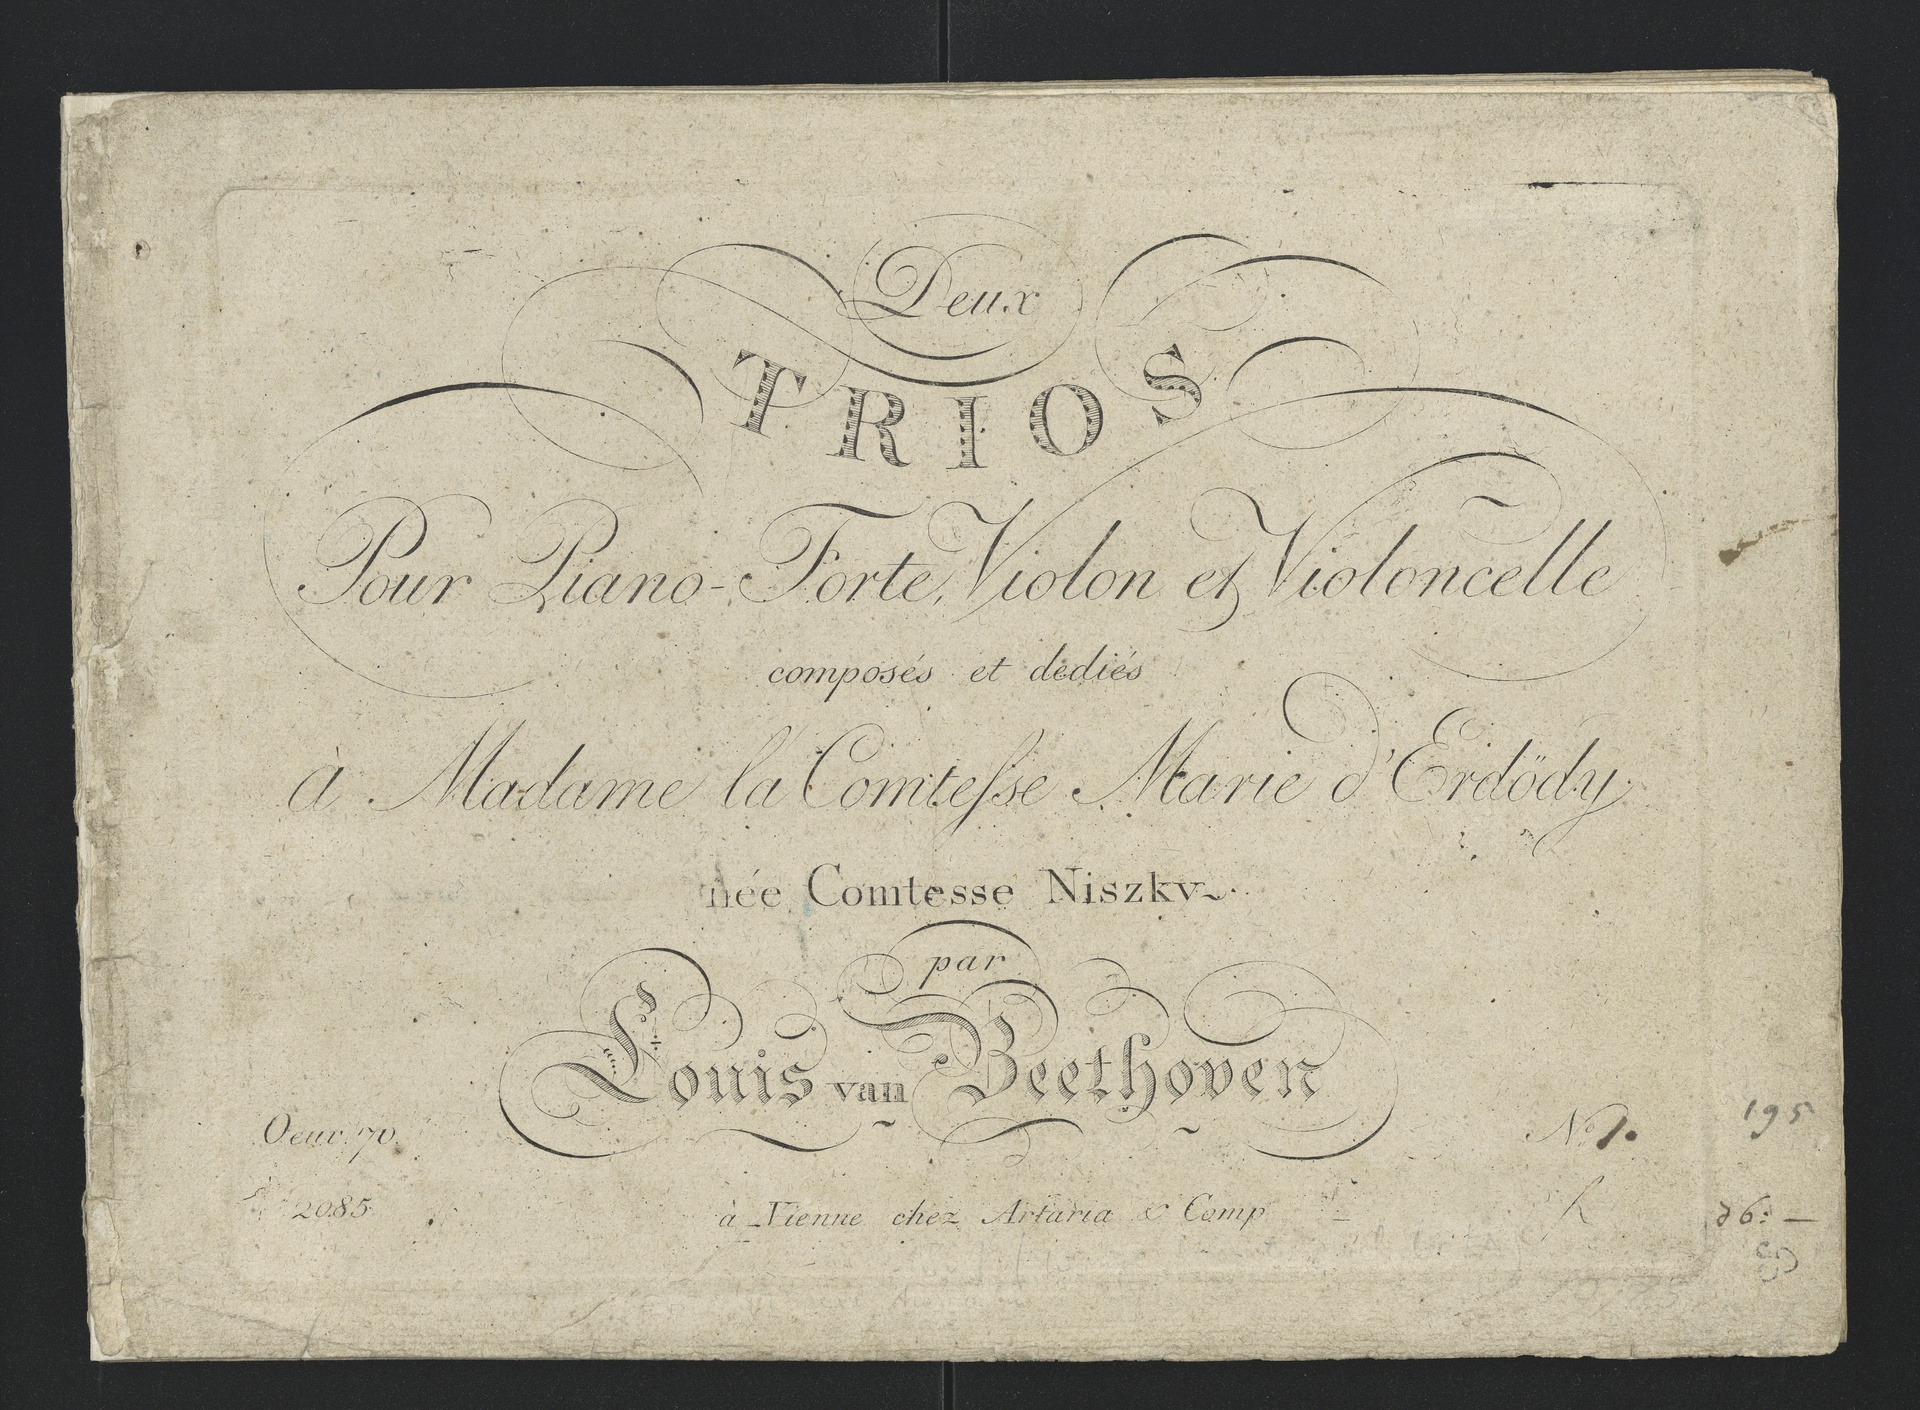 Deux
TRIOS
Pour Piano-Forte, Violon et Violoncelle
composés et dediés
à Madame la Comtesse Marie d'Erdödy
née Comtesse Niszky
par
Louis van Beethoven
Oeuv. 70.
No 1.
195
2085
à Vienne chez Artaria & Comp